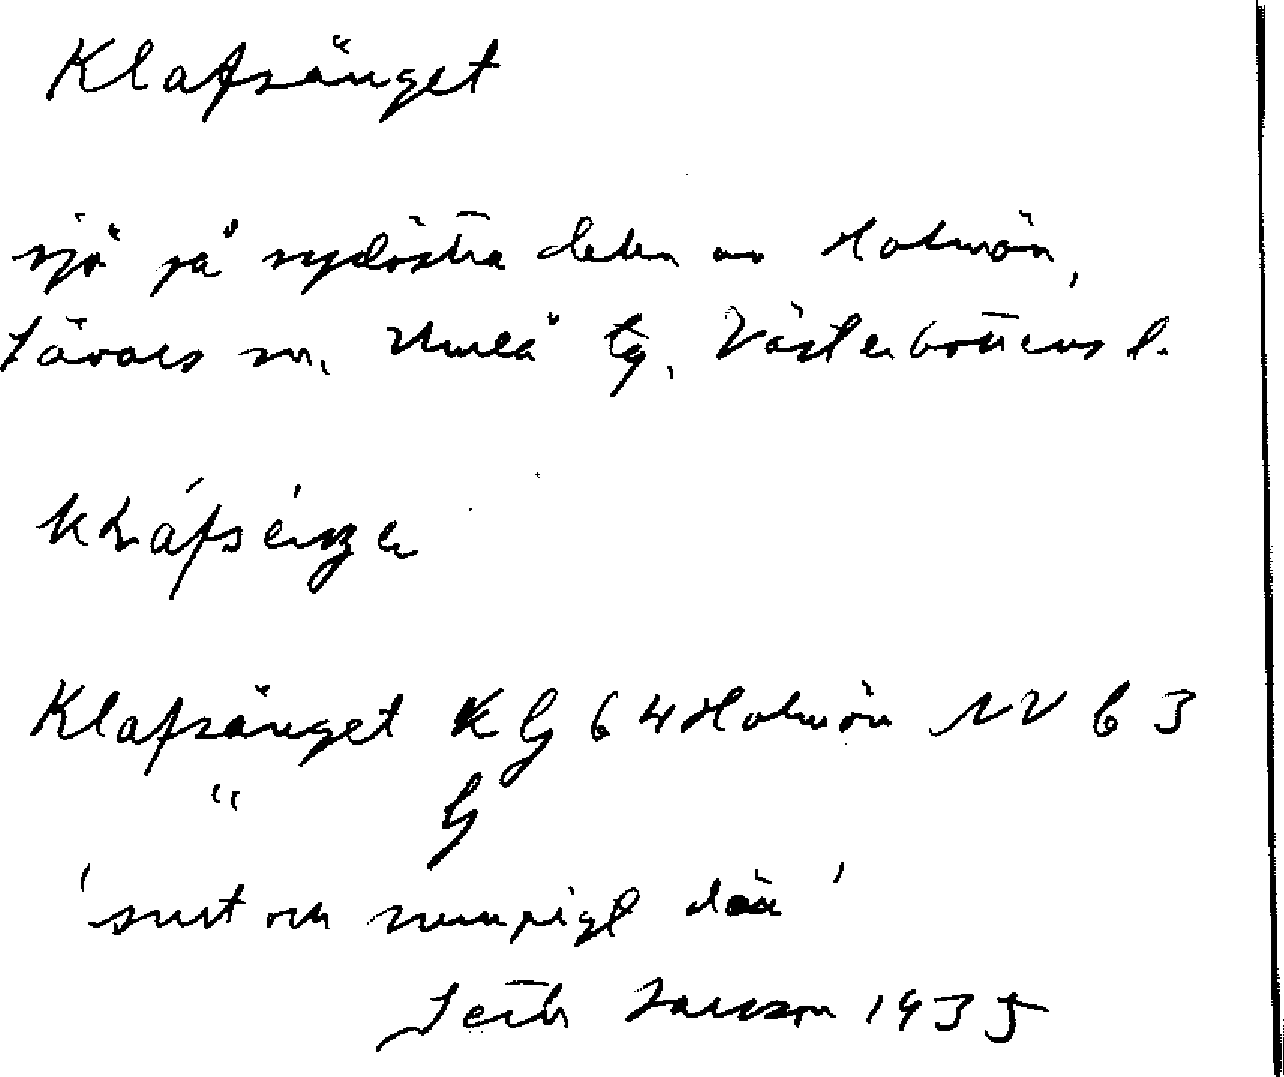 Klapsänget
sjö på sydöstra delen av Holmön,
Sävars sn, Umeå tg, Västerbottens l.
Klapsänget KG 64 Holmön NV 63
" G
'surt och sumpigt där'
Jansson 1935